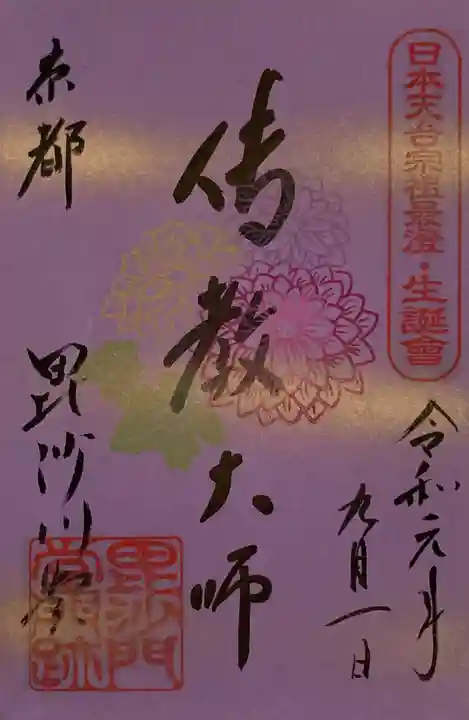 日本天台宗祖最澄・生誕會
令和元年
九月一日
傳教大師
京都
毘沙門堂
毘沙門
堂門跡